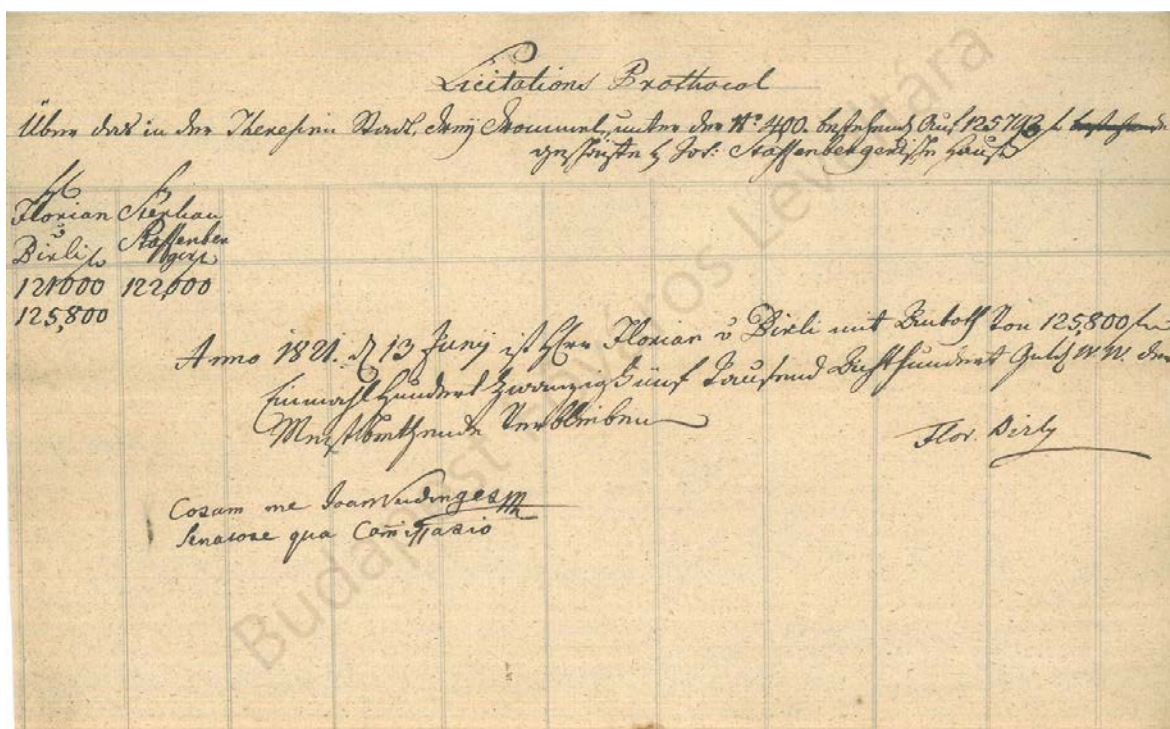 Licitations Prothocol
Über das in der Theresien Stadt, Dreÿ Trommel, unter der No 400. bestehend Auf 125793 f bestehende
geschäzte Jos: Staffenbergerische Hauß
Hℓ
Florian Stephan
v Staffenber
Birli f gerf
121000 122,000
125,800
Anno 1821. d 13 Junÿ ist Herr Florian v Birli mit Anboth Von 125,800 f
Einmahl Hundert Zwanzig Fünf Tausend Achthundert Guld W.W. der
Meistbiethende Verblieben
Flor. Birly
Coram me Joan
Senatore qua Com̄issario
Budapest Főváros Levéltára